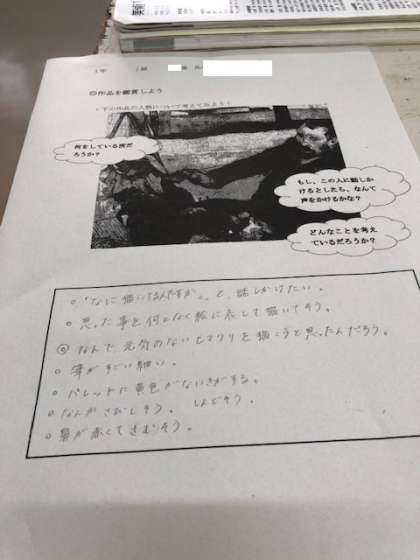 1年 1組 番 氏
◎作品を鑑賞しよう
・下の作品の人物について考えてみよう！
何をしている所だ
ろうか？
もし、この人に話しか
けるとしたら、なんて
声をかけるかな？
どんなことを考え
ているだろうか？
○「なに描いてるんですか。」と、話しかけたい。
○思った事を何となく絵に表して描いてそう。
◎なんで、元気のないヒマワリを描こうと思ったんだろう。
○筆がすごい細い。
○パレットに黄色がない気がする。
○なんかさむしそう。 しんどそう。
○鼻が赤くてさむそう。